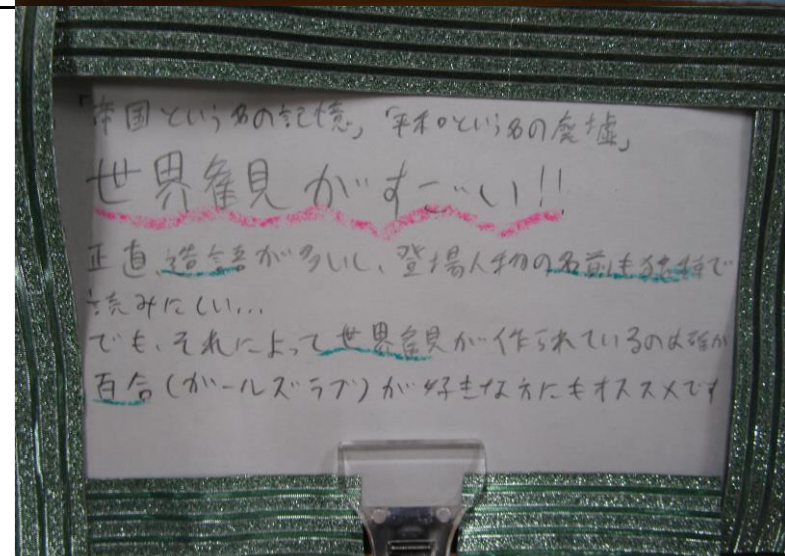 「帝国という名の記憶」「平和という名の廃墟」
世界観がすご〜い!!
正直、造語が多いし、登場人物の名前も独特で
読みにくい…
でも、それによって世界観が作られているのは確か
百合(ガールズラブ)が好きな方にもオススメです